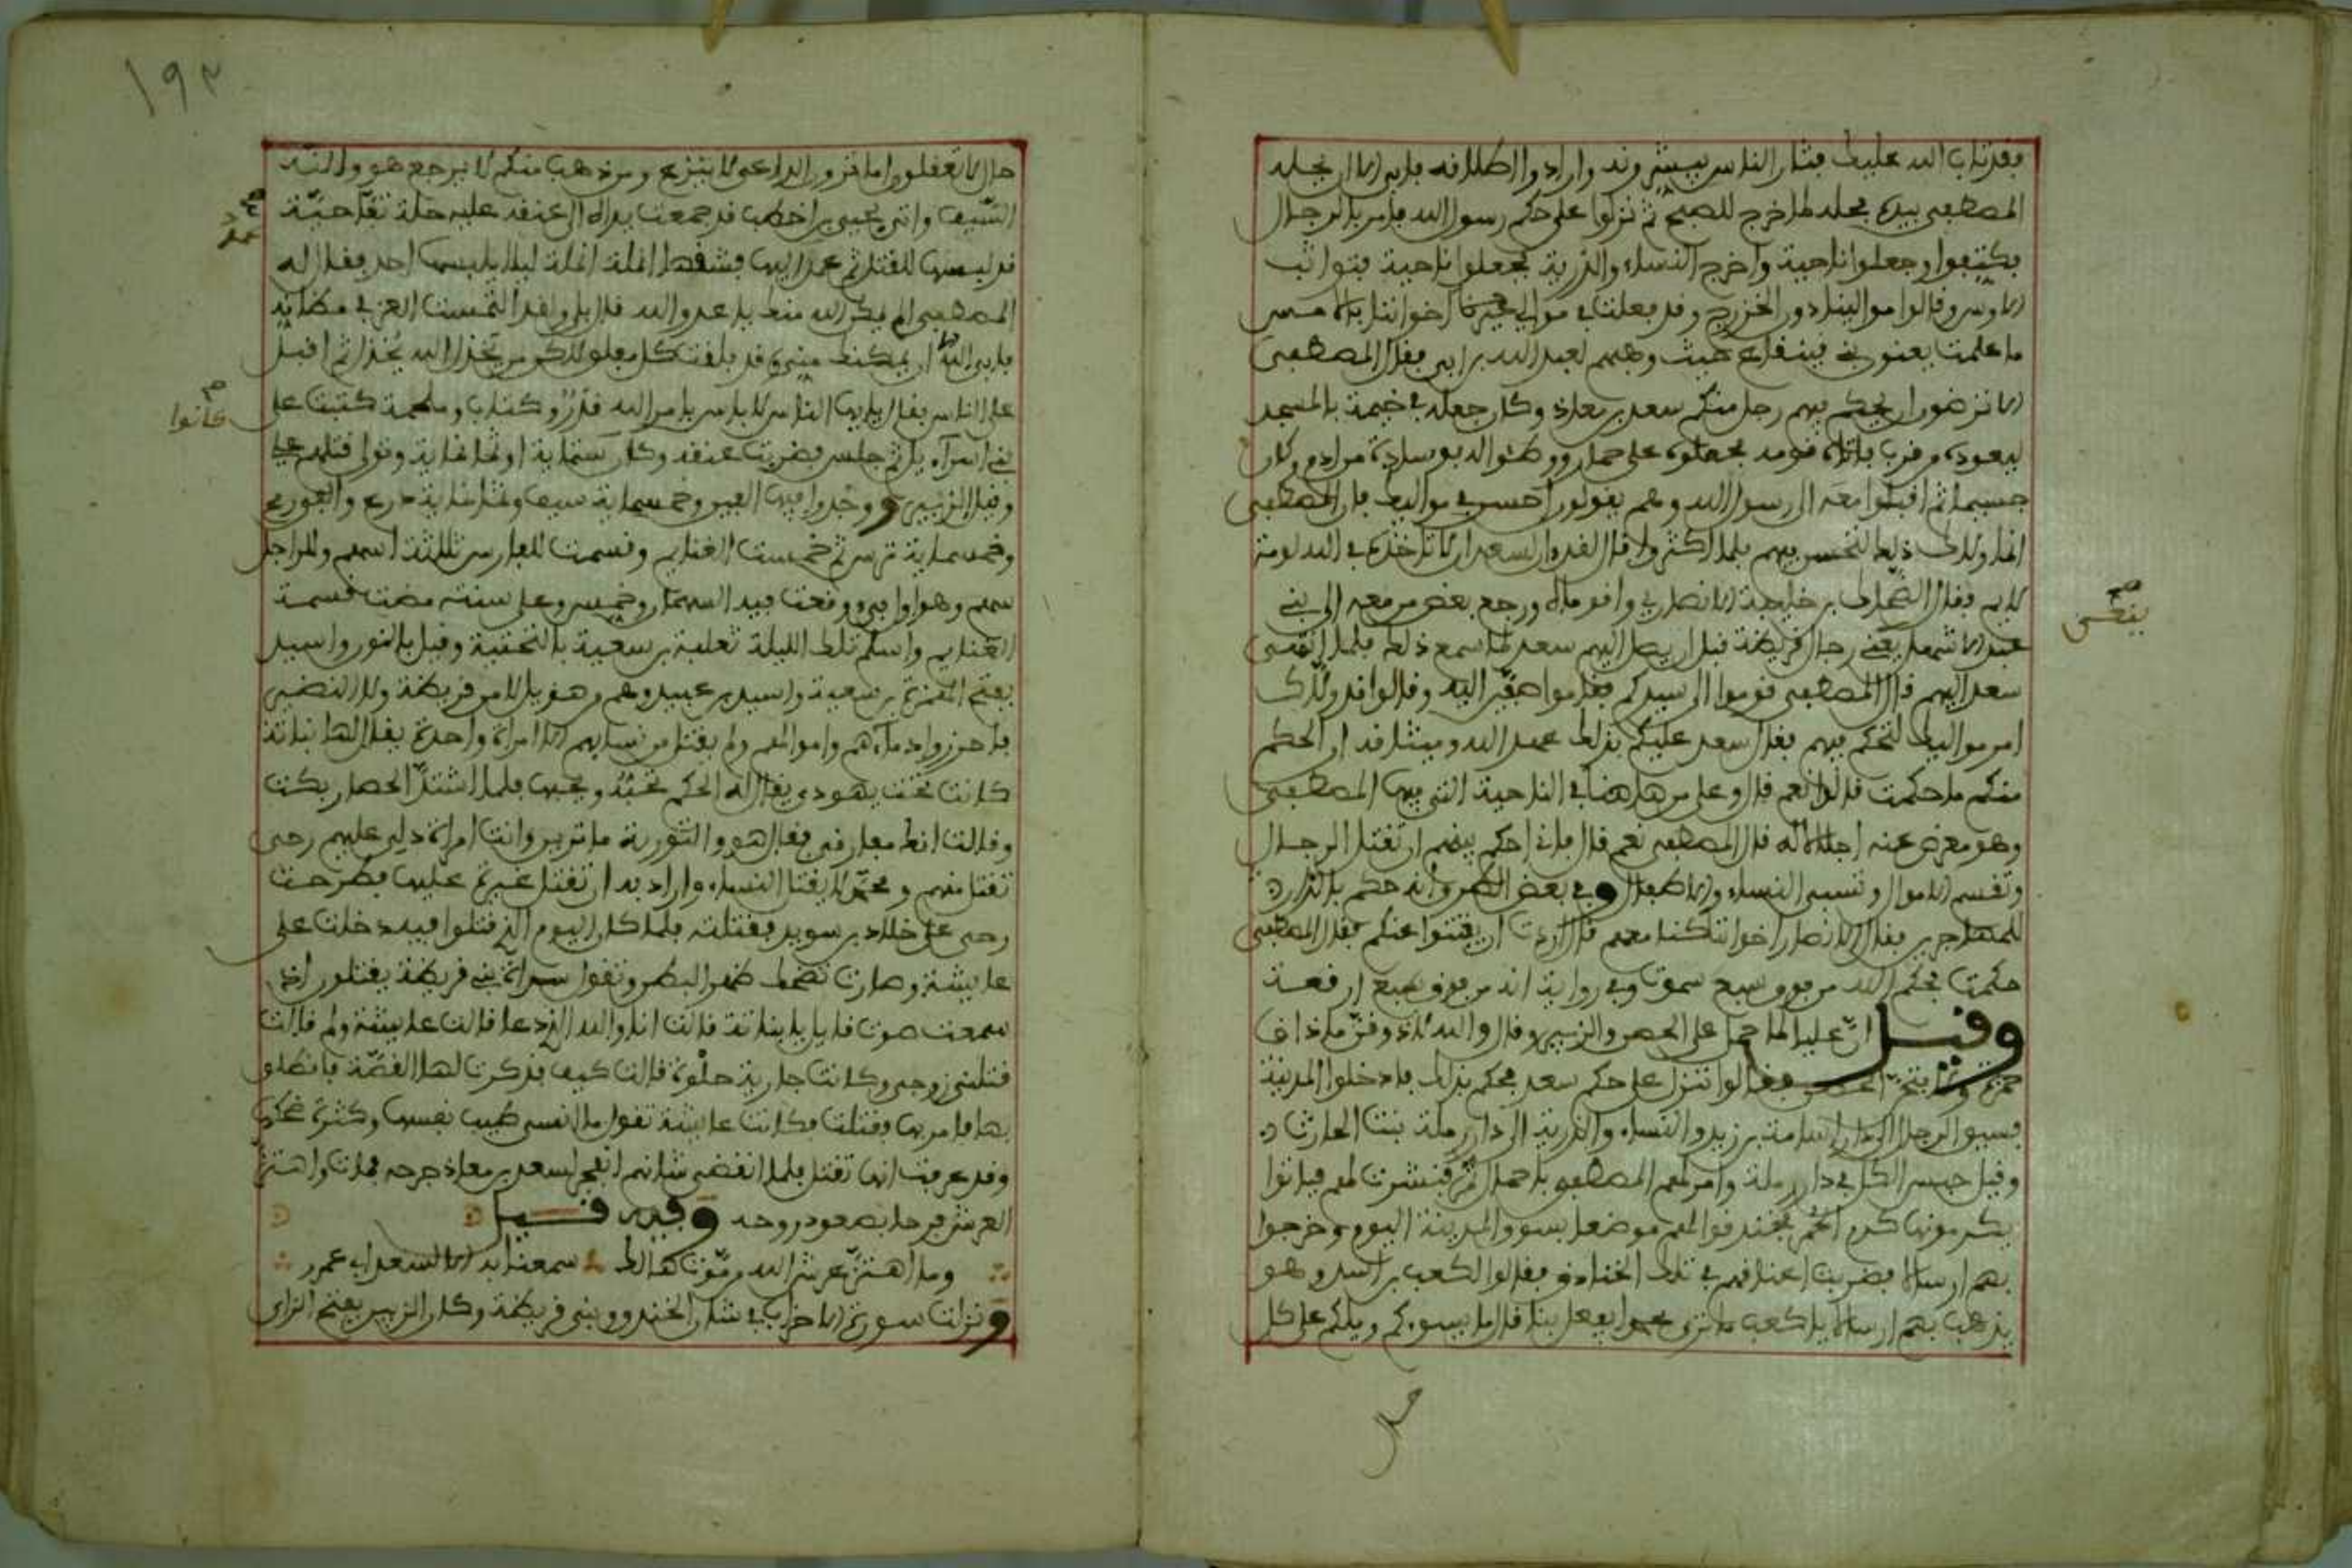 فقد تاب الله عليك فثار الناس يبشرونه وارادوا اطلاقه فابى الا ان يحله
المصطفى بيده فحله لما خرج للصبح ثم نزلوا على حكم رسول الله فامر بالرجال
فكتفوا وجعلوا ناحية واخرج النساء والذرية فجعلوا ناحية فتواثب
الاوس وقالوا موالينا دون الخزرج وقد فعلت في موالي اخواننا بالامس
ما علمت يعنون بني قينقاع حيث وهبهم لعبد الله بن ابي فقال المصطفى
الا ترضون ان يحكم فيهم رجل منكم سعد بن معاذ وكان جعله في خيمة بالمسجد
ليعوده من قرب فاتاه قومه فحملوه على حمار ووطئوا له بوسادة من ادم وكان
جسيما ثم اقبلوا معه الى رسول الله وهم يقولون احسن في مواليك فان المصطفى
انما ولاك ذلك لتحسن فيهم فلما اكثروا قال لقد آن لسعد ان لا تاخذه في الله لومة
لايم فقال الضحاك بن خليفة الانصاري واقوماه ورجع بعض من معه الى بني
عبد الاشهل ينعي رجال قريظة قبل ان يصل اليهم سعد لما سمع ذلك فلما انتهى
سعد اليهم قال المصطفى قوموا الى سيدكم فقاموا صفين اليه وقالوا قد ولاك
امر مواليك لتحكم فيهم فقال سعد عليكم بذلك عهد الله وميثاقه ان الحكم
منكم ما حكمت قالوا نعم قال وعلى من هاهنا في الناحية التي فيها المصطفى
وهو معرض عنه اجلالا له قال المصطفى نعم قال فاني احكم فيهم ان تقتل الرجال
وتقسم الاموال وتسبى النساء والاطفال وفي بعض الطرق انه حكم بالدار
للمهاجرين فقال الانصار اخواننا كنا معهم قال اردت ان يغنوا عنكم فقال المصطفى
حكمت بحكم الله من فوق سبع سموت وفي رواية انه من فوق سبع ارقعة
وقيل ان عليا لما حمل على الحصن والزبير وقال والله لاذوقن ما ذاق
حمزة فقالوا ننزل على حكم سعد فحكم بذلك فادخلوا المدينة
فسيق الرجال الى دار اسامة بن زيد والنساء والذرية الى دار رملة بنت الحارث
وقيل حبس الكل في دار رملة وامر لهم المصطفى باحمال تمر فنثرت لهم فباتوا
يكدمونها كدم الحمر فخندقوا لهم موضعا بسوق المدينة اليوم وخرجوا
بهم ارسالا فضربت اعناقهم في تلك الخنادق فقالوا لكعب بن اسد وهو
يذهب بهم ارسالا يا كعب ما ترى محمدا يفعل بنا قال ما يسوءكم ويلكم على كل
حال
ينكى
١٩٢
حال لا تعقلون اما ترون الداعي لا ينزع ومن ذهب منكم لا يرجع هو والله
السيف واتي بحيي بن اخطب قد جمعت يداه الى عنقه عليه حلة تفاحية
قد لبسها للقتل ثم عمد اليها فشقها انملة انملة ليلا يلبسها احد فقال له
المصطفى الم يمكن الله منك يا عدو الله قال بلى ولقد التمست العز في مظانه
فابى الله ان يمكنك مني قد بلغت كل مبلغ ولكن من يخذل الله يخذل ثم اقبل
على الناس فقال يايها الناس لا باس بامر الله قدر وكتاب وملحمة كتبت على
بني اسرآءيل ثم جلس فضربت عنقه وكان ستماية او ثمانماية وتولى قتلهم علي
وقيل الزبير ووجدوا فيها الفين وخمسماية سيف وثلاثماية درع والفي رمح
وخمسماية ترس ثم خمست الغنايم وقسمت للفارس ثلاثة اسهم وللراجل
سهم وهو اول فيء وقعت فيه السهمان وخمس وعلى سنته مضت قسمة
الغنايم واسلم تلك الليلة ثعلبة بن سعية بالتحتية وقيل بالنون واسيد
بفتح الهمزة بن سعية واسيد بن عبيد وهم من هذيل لا من قريظة ولا النضير
فاحرزوا دماءهم واموالهم ولم يقتل من نسايهم الا امراة واحدة يقال لها نباتة
كانت تحت يهودي يقال له الحكم تحبه ويحبها فلما اشتد الحصار بكت
وقالت انك مفارقي فقال هو والتورية ما ترين وانت امراة دلي عليهم رحى
تقتل منهم ومحمد لا يقتل النساء واراد به ان تقتل غيرة عليها فطرحت
رحى على خلاد بن سويد فقتلته فلما كان اليوم الذي قتلوا فيه دخلت على
عايشة وصارت تضحك ظهرا لبطن وتقول سراة بني قريظة يقتلون اذ
سمعت صوت قايل يا نباتة قالت انا والله الذي دعا قالت عايشة ولم قالت
قتلني زوجي وكانت جارية حلوة قالت كيف فذكرت لها القصة فانطلق
بها فامر بها فقتلت فكانت عايشة تقول ما انسى طيب نفسها وكثرة ضحكها
وقد عرفت انها تقتل فلما انقضى شانهم انفجر لسعد بن معاذ جرحه فمات واهتز
العرش فرحا بصعود روحه وفيه قيل
وما اهتز عرش الله من موت هالك سمعنا به الا لسعد ابي عمرو
ونزلت سورة الاحزاب في شان الخندق وبني قريظة وكان الزبير بفتح الزاي